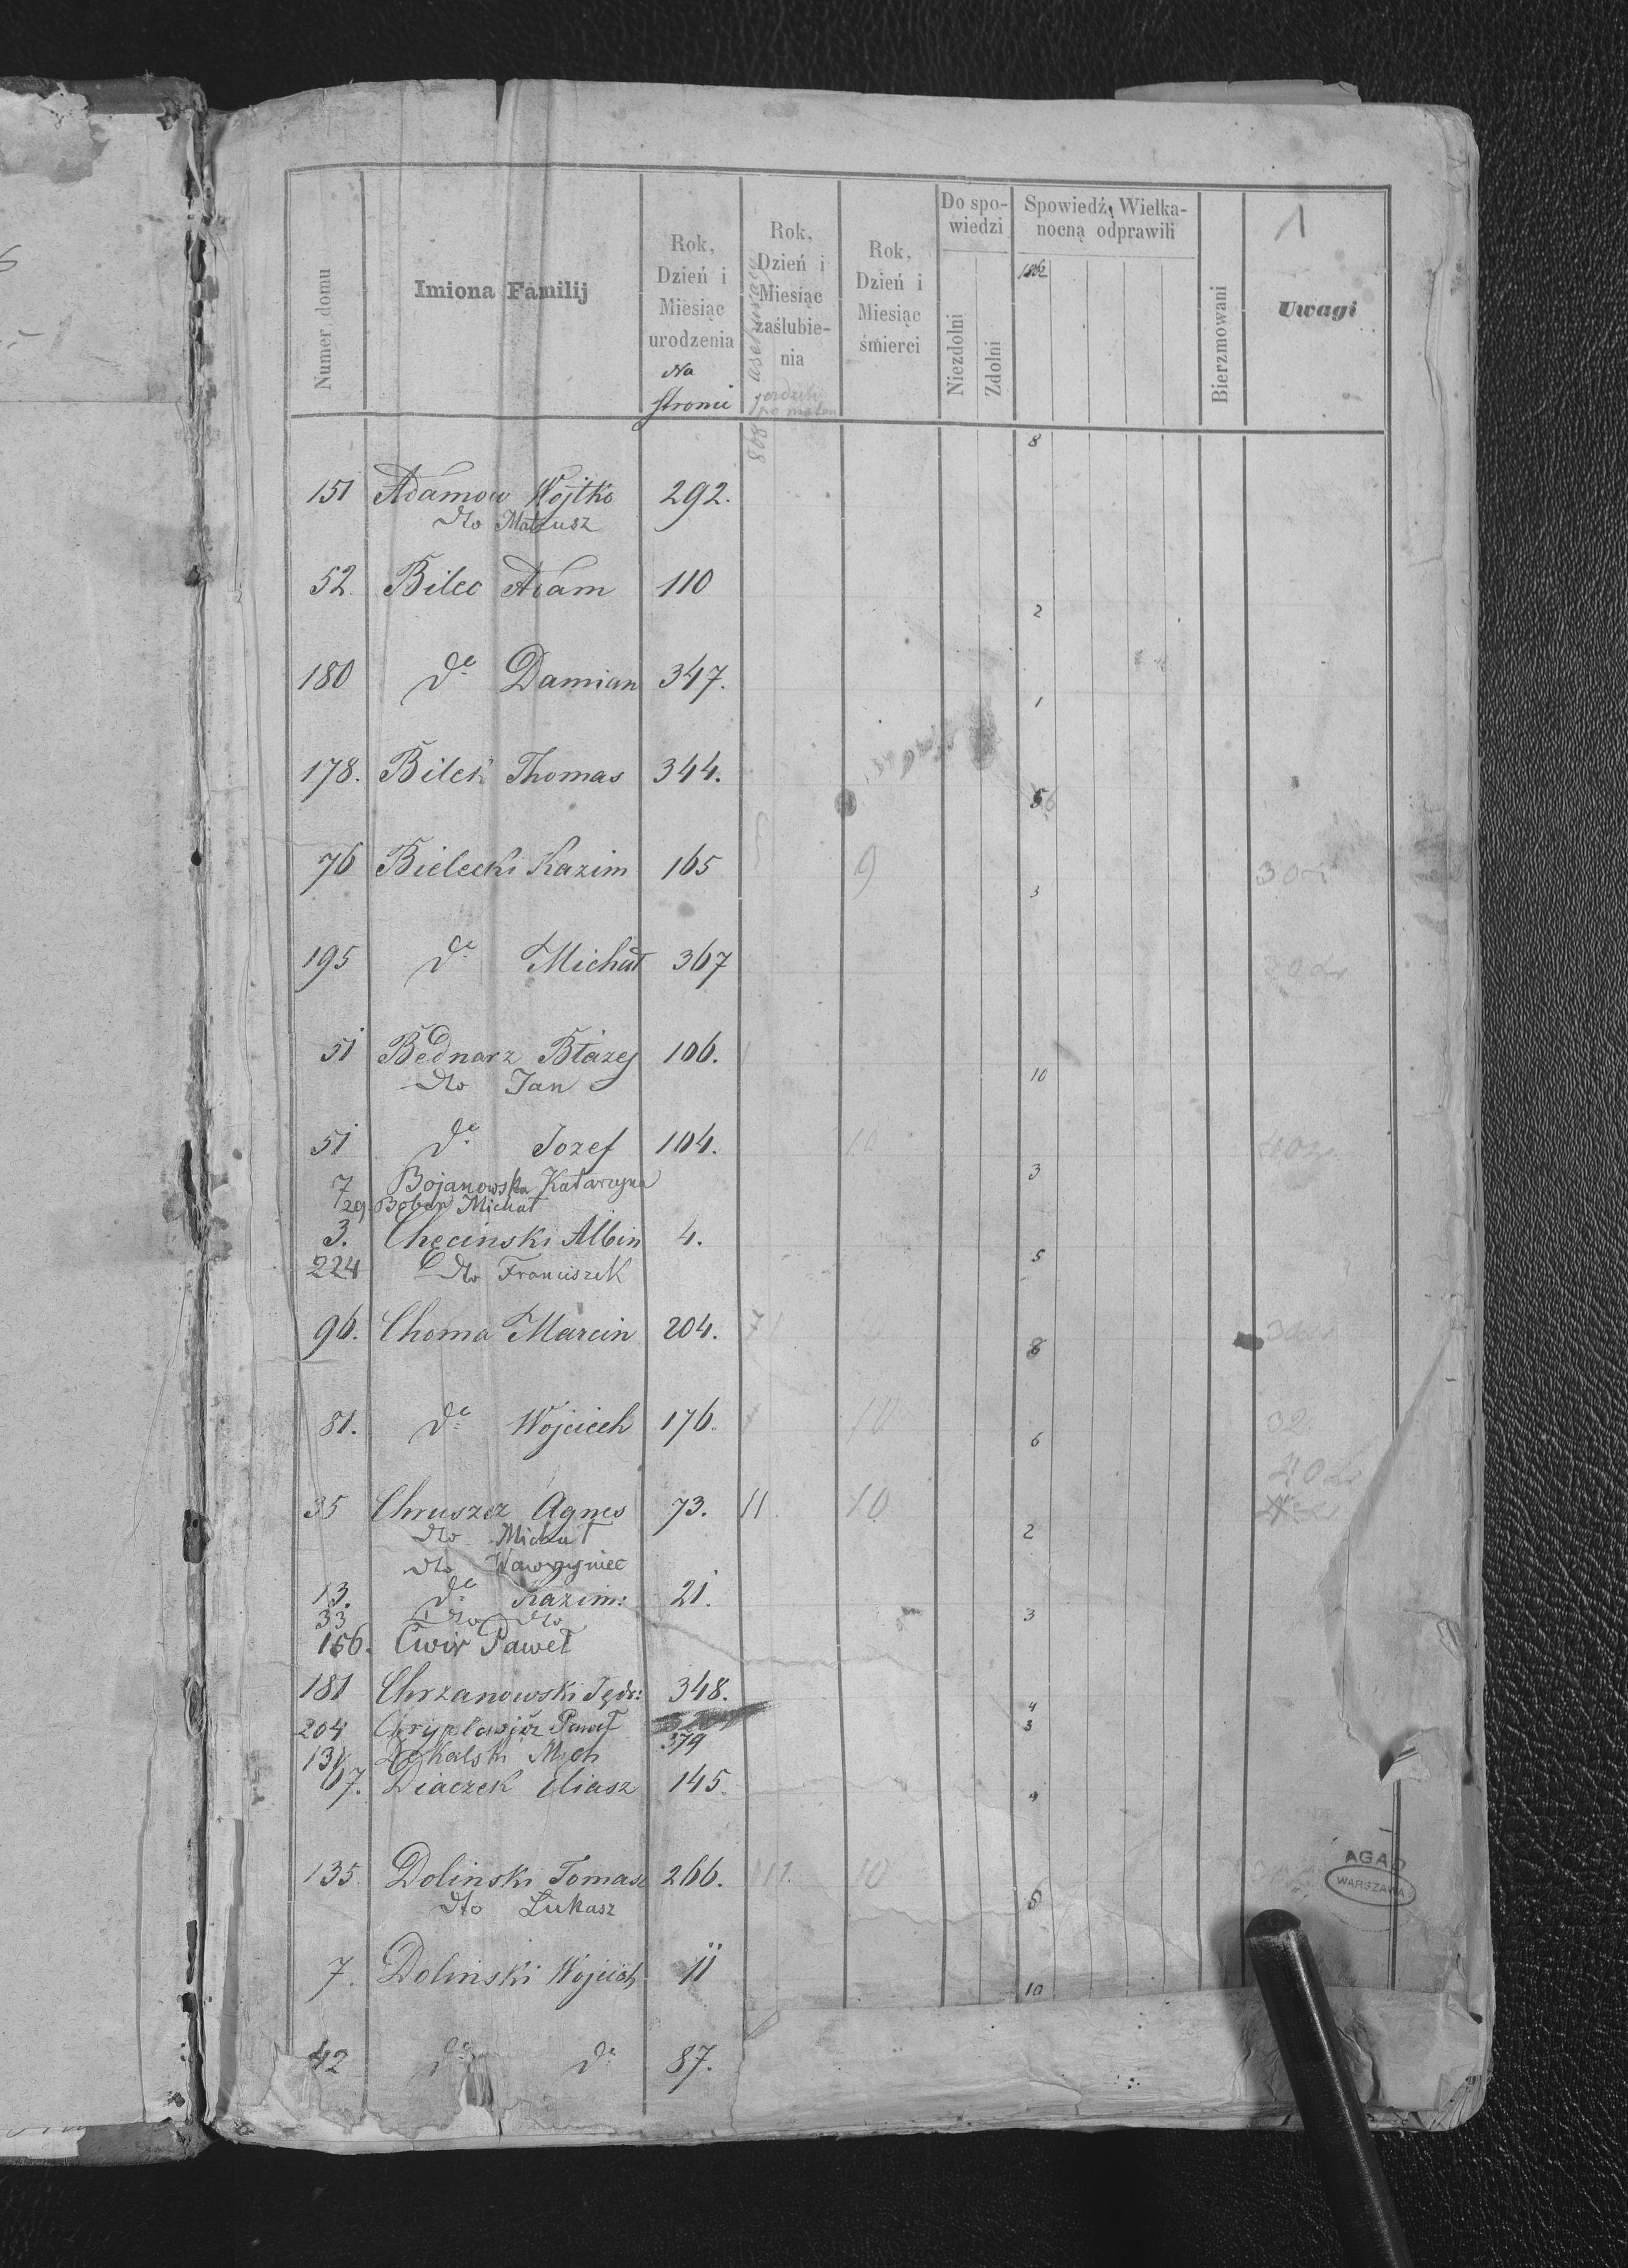 Numer domu
Imiona Familij
Rok, Dzień i Miesiąc urodzenia
Na stronie
Rok, Dzień i Miesiąc zaślubienia
Rok, Dzień i Miesiąc śmierci
Do spowiedzi
Niezdolni
Zdolni
Spowiedź Wielkanocną odprawili
1862
Bierzmowani
1
Uwagi
808
8
151 Adamow Wojtko 292.
dto Mateusz
52. Bilec Adam 110
2
180 do Damian 347.
1
178. Bilek Thomas 344.
5
76 Bielecki Kazim 165 9 30
3
195 do Michał 367
51 Bednarz Błażej 106.
dto Jan 10
51 do Jozef 104. 10
7 Bojanowska Katarzyna 3
29. Michał
3. Checinski Albin 4.
224 dto Franciszek 5
96. Choma Marcin 204. 7
6
81. do Wojciech 176. 10 32
6
40
35 Chruszcz Agnes 73. 11 10
dto Michał 2
dto Wawrzyniec
13. do Kazim: 21.
33 dto dto 3
156. Ćwir Paweł
181 Chrzanowski Jędr: 348.
4
204 Paweł 3
379
131
67. Diaczek Eliasz 145.
4
135 Dolinski Tomasz 266. 10
dto Łukasz 5
7. Dolinski Wojciech 11
10
42 do do 87.
AGAD
WARSZAWA